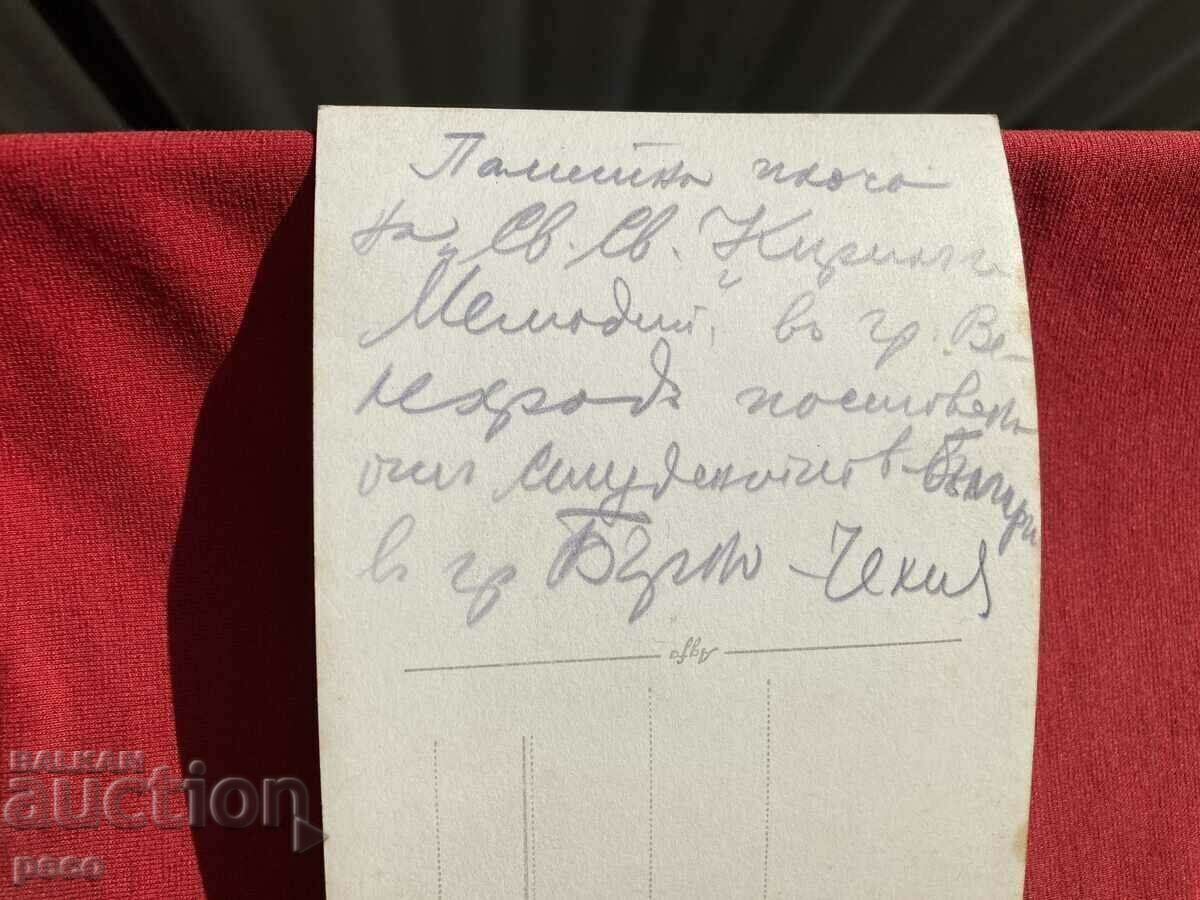 Паметна плоча
на "Св. Св. Кирил и
Методий" въ гр. Ве-
лехрадъ поставена
от студентите българи
въ гр Бърно - Чехия
Agfa
BALKAN
auction
paco